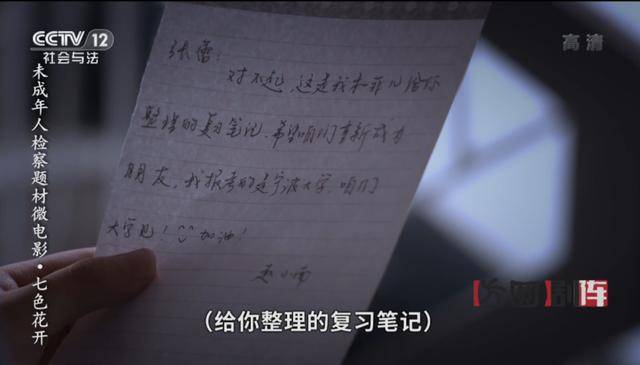 CCTV 12
社会与法
高清
未成年人检察题材微电影·七色花开
张蕾：
对不起，这是我和菲儿给你
整理的复习笔记，希望咱们重新成为
朋友，我报考的是宁波大学，咱们
大学见！^^加油！
剧阵
（给你整理的复习笔记）